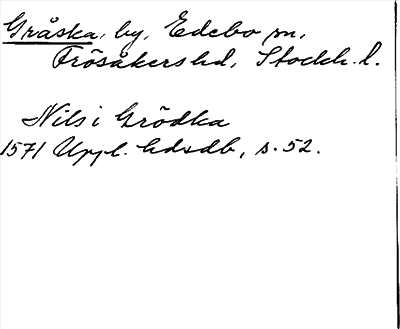 Gråska, by, Edebo sn,
Frösåkers hd, Stockh. l.
Nils i Grödka
1571 Uppl. hdsdb, s. 52.